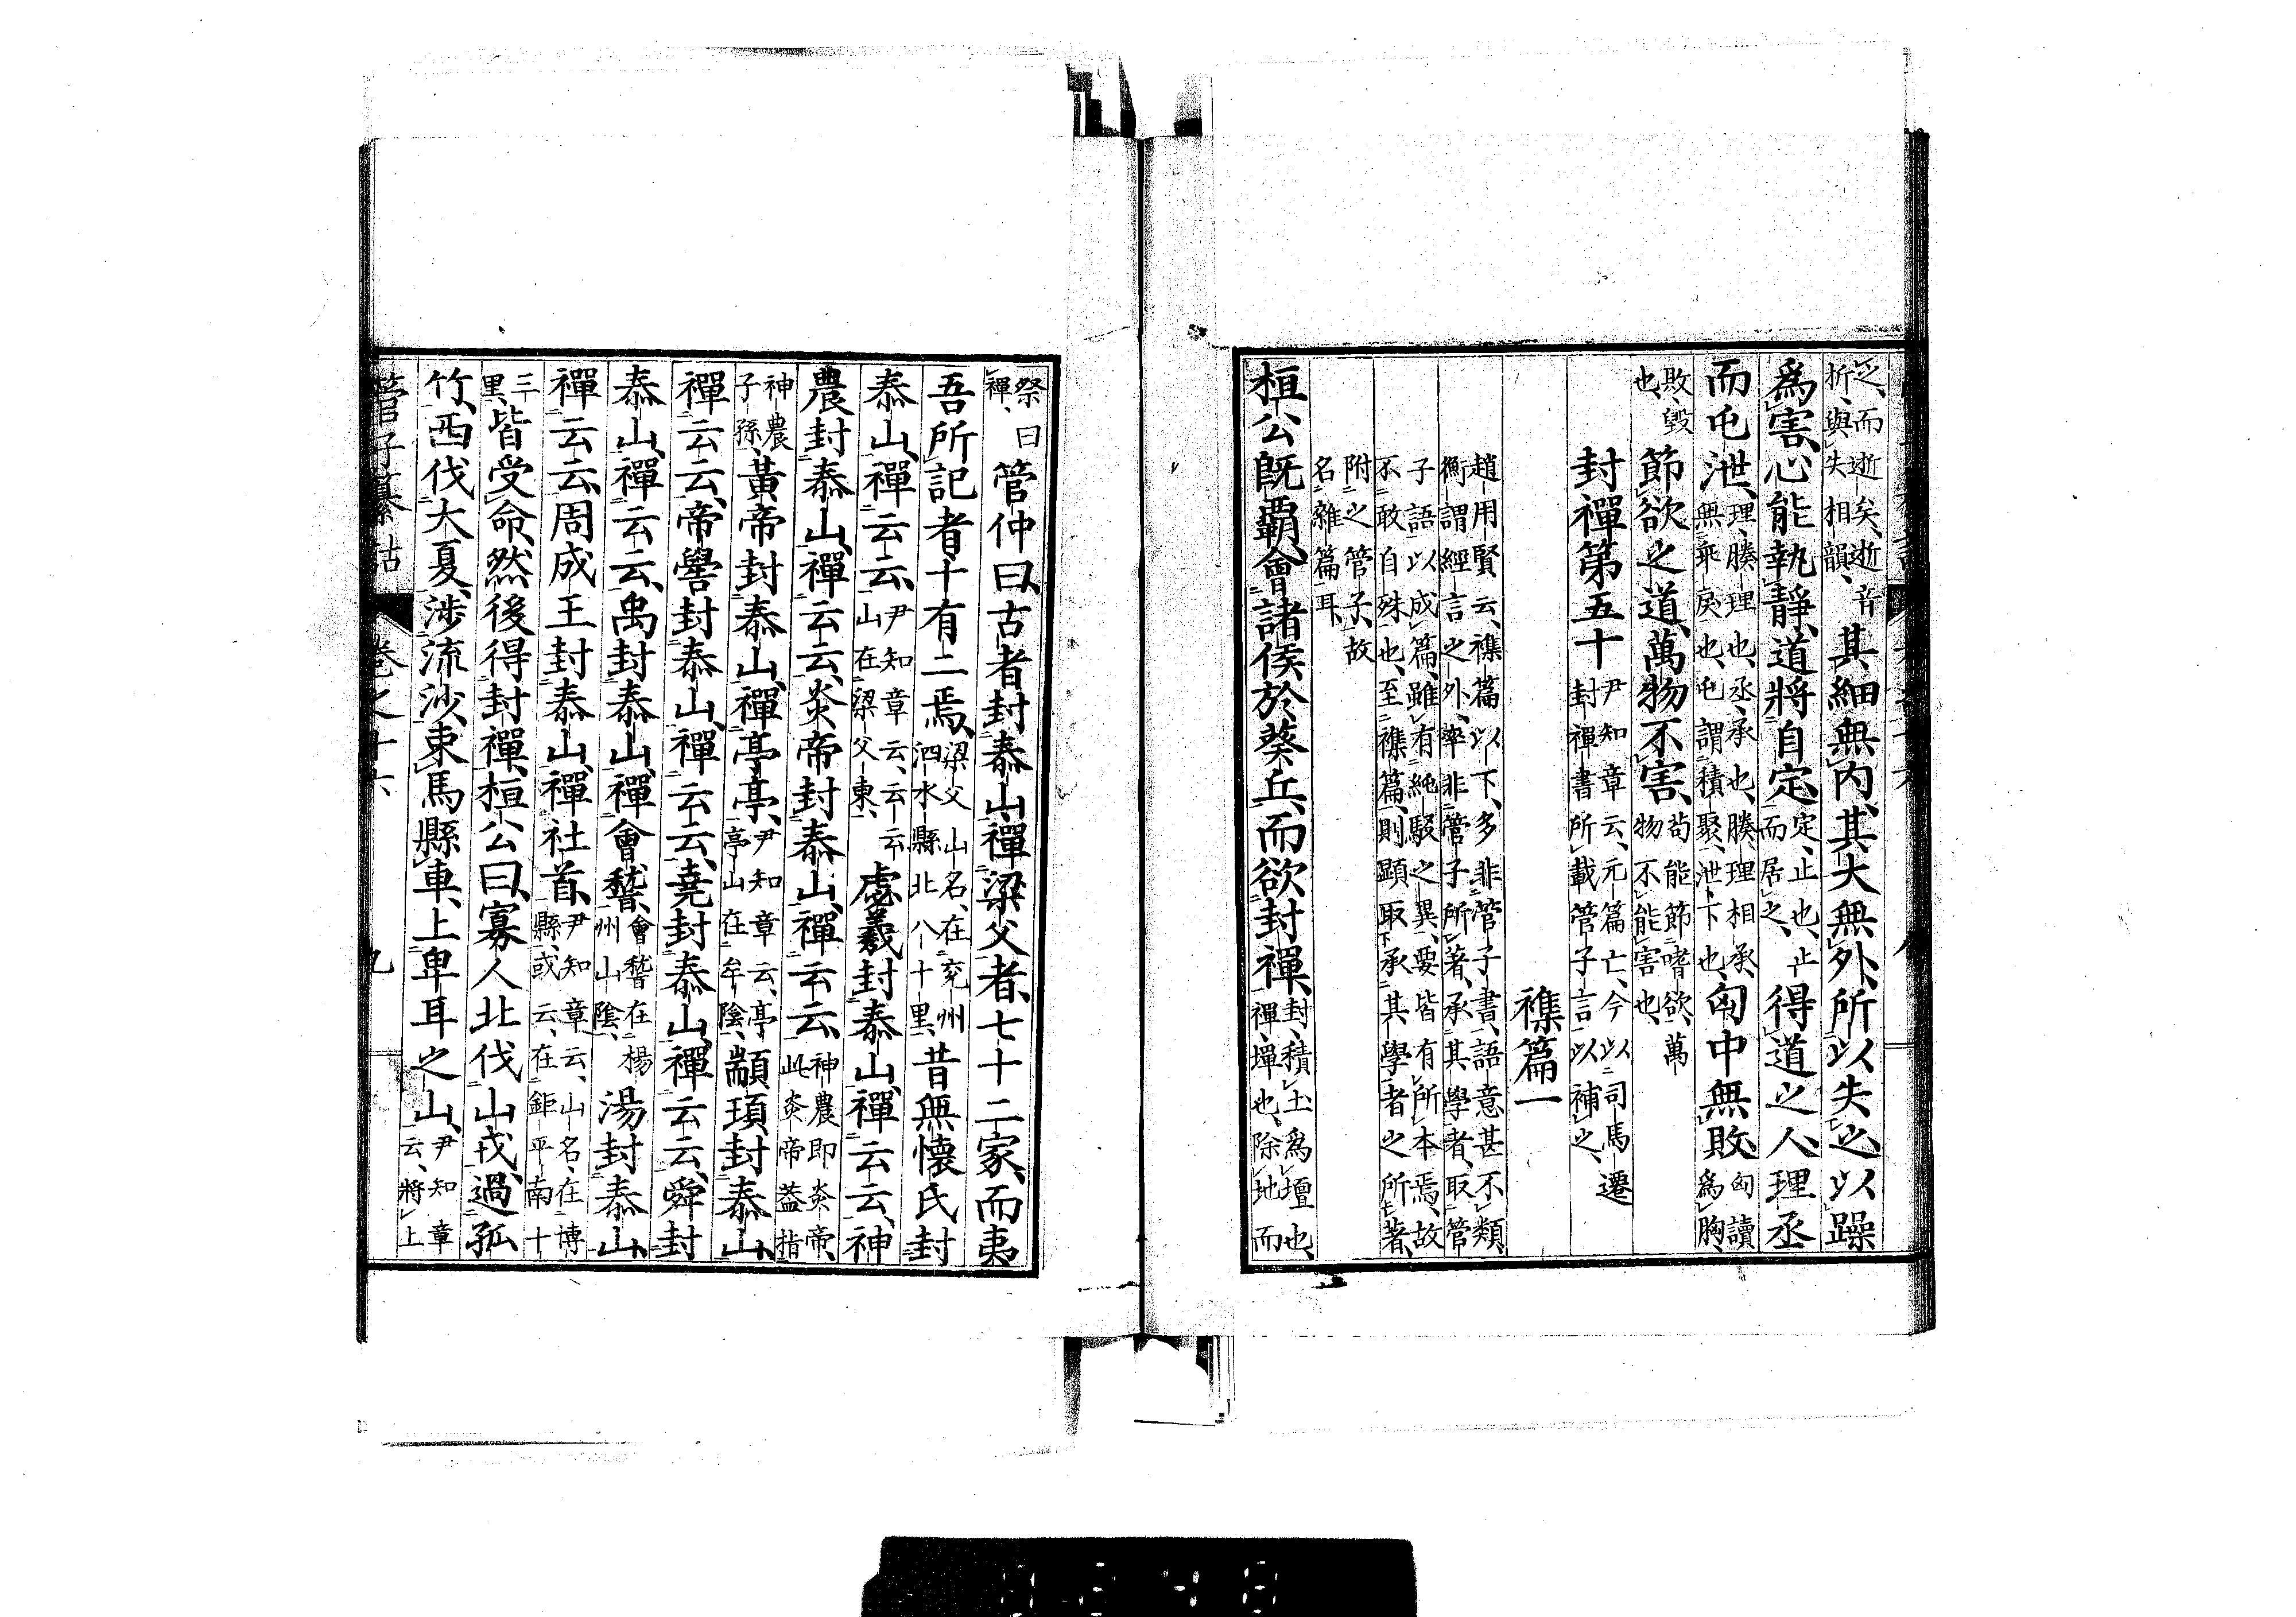 之、而逝矣、逝音折、與失相韻、其細無內、其大無外、所以失之、以躁
爲害、心能執靜、道將自定、定、止也、止而居之、得道之人理丞
而屯泄、理、腠理也、丞、承也、腠理相承、無乖戾也、屯謂積聚、泄下也、匈中無敗、匈讀爲胸、
敗、毀也、節欲之道、萬物不害、苟能節嗜欲、萬物不能害也、
封禪第五十 尹知章云、元篇亡、今以司馬遷封禪書所載管子言以補之、
襍篇一
趙用賢云、襍篇以下、多非管子書、語意甚不類、
衡謂經言之外、率非管子所著、承其學者、取管
子語以成篇、雖有純駁之異、要皆有所本焉、故
不敢自殊也、至襍篇、則顯取承其學者之所著、
附之管子、故
名雜篇耳、
桓公既霸、會諸侯於葵丘、而欲封禪、封、積土爲壇也、禪、墠也、除地而
祭曰禪、管仲曰、古者封泰山、禪梁父者、七十二家、而夷
吾所記者十有二焉、梁父山名、在兗州泗水縣北八十里、昔無懷氏封
泰山、禪云云、尹知章云、云云山在梁父東、虙羲封泰山、禪云云、神
農封泰山、禪云云、炎帝封泰山、禪云云、神農即炎帝、此炎帝蓋指
神農子孫、黃帝封泰山、禪亭亭、尹知章云、亭亭山在牟陰、顓頊封泰山、
禪云云、帝嚳封泰山、禪云云、堯封泰山、禪云云、舜封
泰山、禪云云、禹封泰山、禪會稽、會稽在楊州山陰、湯封泰山、
禪云云、周成王封泰山、禪社首、尹知章云、山名、在博縣、或云、在鉅平南十
三里、皆受命、然後得封禪、桓公曰、寡人北伐山戎、過孤
竹、西伐大夏、涉流沙、束馬縣車、上卑耳之山、尹知章云、將上
管子纂詁 卷之十六 九